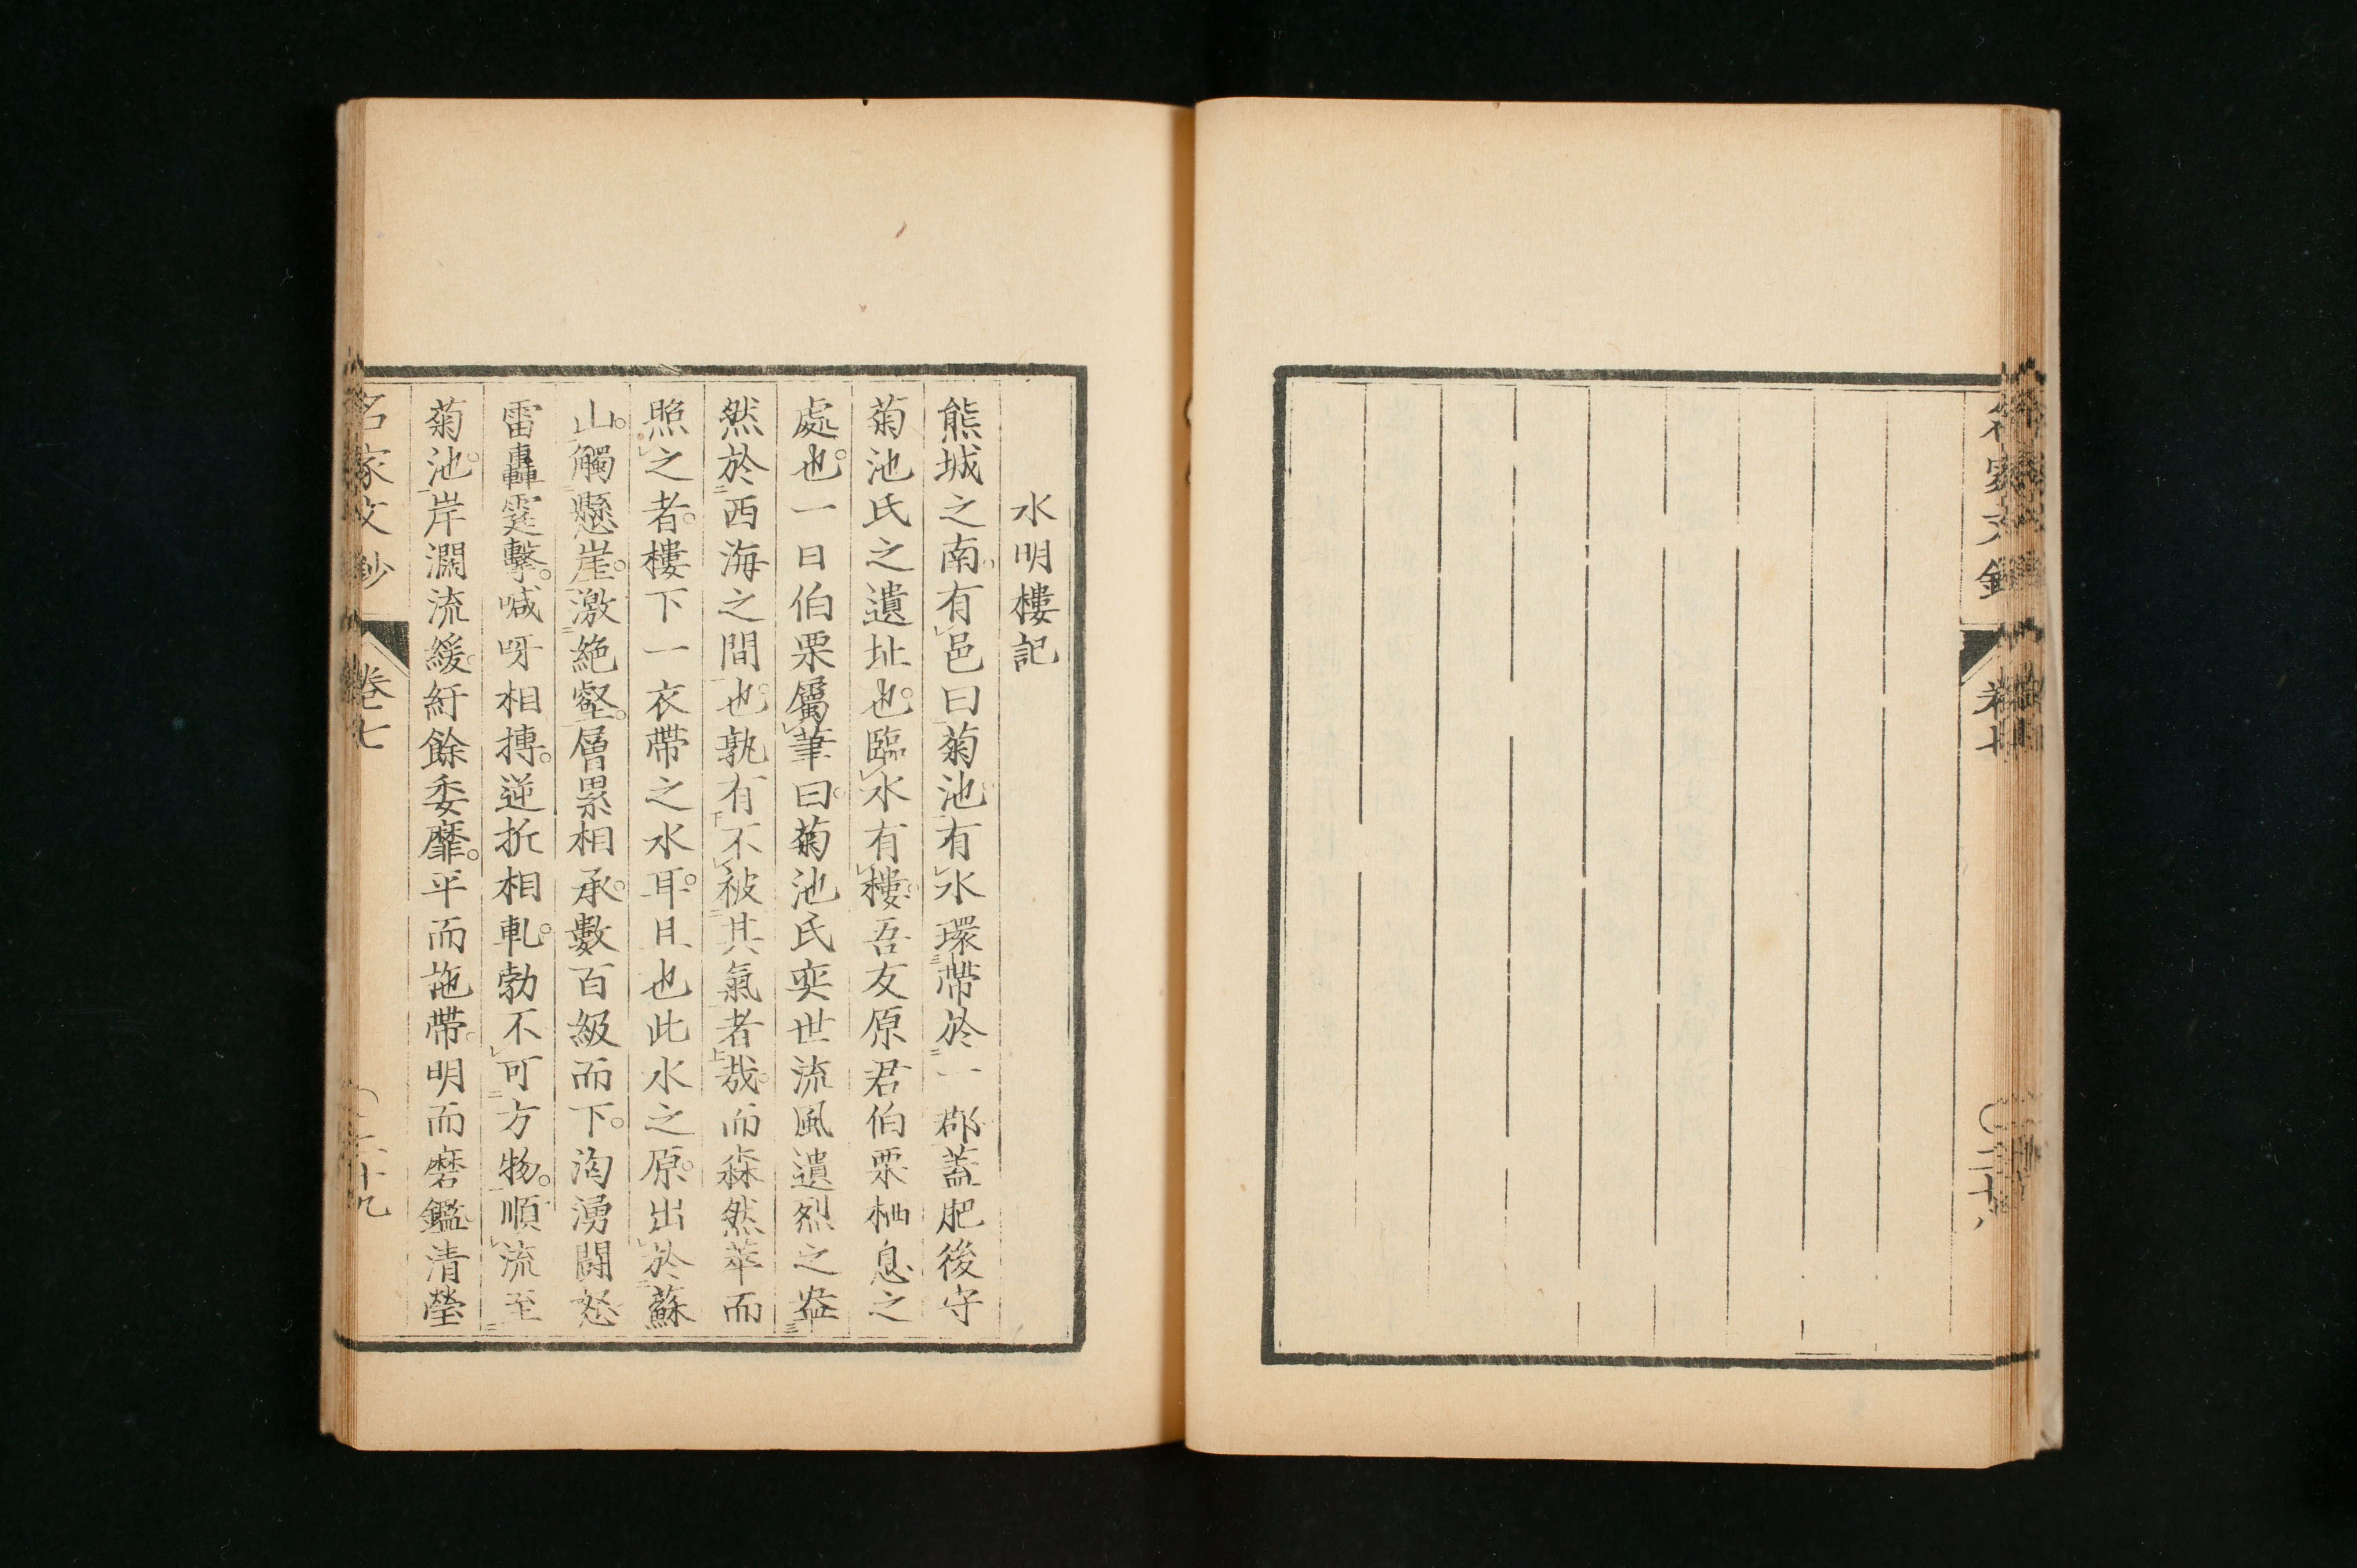 名家文鈔 卷七 〇二十八
水明樓記
熊城之南。有邑曰菊池。有水環帶於一郡蓋肥後守
菊池氏之遺址也。臨水有樓。吾友原君伯栗栖息之
處也。一日伯栗屬筆曰。菊池氏奕世流風遺烈之盎
然於西海之間也。孰有不被其氣者哉。而森然萃而
照之者。樓下一衣帶之水耳。且也此水之原。出於蘇
山。觸懸崖。激絶壑。層累相承。數百級而下。洶湧鬪怒
雷轟霆擊。喊呀相搏。逆折相軋。勃不可方物。順流至
菊池。岸濶流緩。紆餘委靡。平而拖帶。明而磨鑑清瑩
名家文鈔 卷七 〇二十九